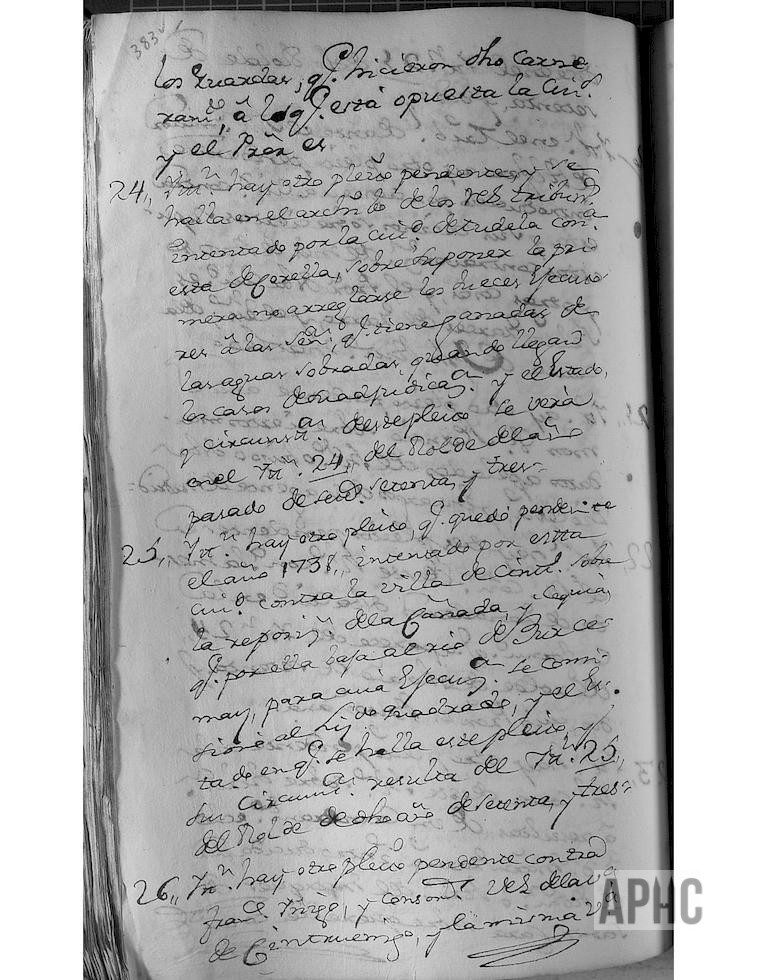 383 v
los Guardas, q.e hicieron dho Carne
ram.to, â lo q.e está opuesta la Ciu.d
y el Prĩor es
24,, Ytt.n hay otro pleito pendente, y se
halla en el archibo de los Rs. tribun.s
intentado por la ciu.d de tudela con.a
esta de Corella, sobre suponer la pri
mera no arreglarse los Jueces Executo
res â las Sen.as, q.e tiene ganadas de
las aguas sobradas, quando llegan
los casos de su adjudicaz.n y el estado,
y circunst.as de este pleito se verà
en el Ytt.n 24,, del Rolde del año
pasado de setenta, y tres
25,, Ytt.n hay otro pleito, q.e quedó pendente
el año 1738,, intentado por estta
ciu.d contra la villa de Cint.o sobre
la reposiz.n de la Cañada, y cequia
q.e por ella baja al rio de
may, para cuia Execuz.n se comi
sionó al Liz.do quadrado, y el es
tado en q.e se halla este pleito, y
sus circuns.as resulta del Ytt.n 25,,
del Rolde de dho año de setenta, y tres
26,, Ytt.n hay otro pleito pendente contra
Fran.co y conson.s de la va
de Cintruenigo, y la misma va
APHC